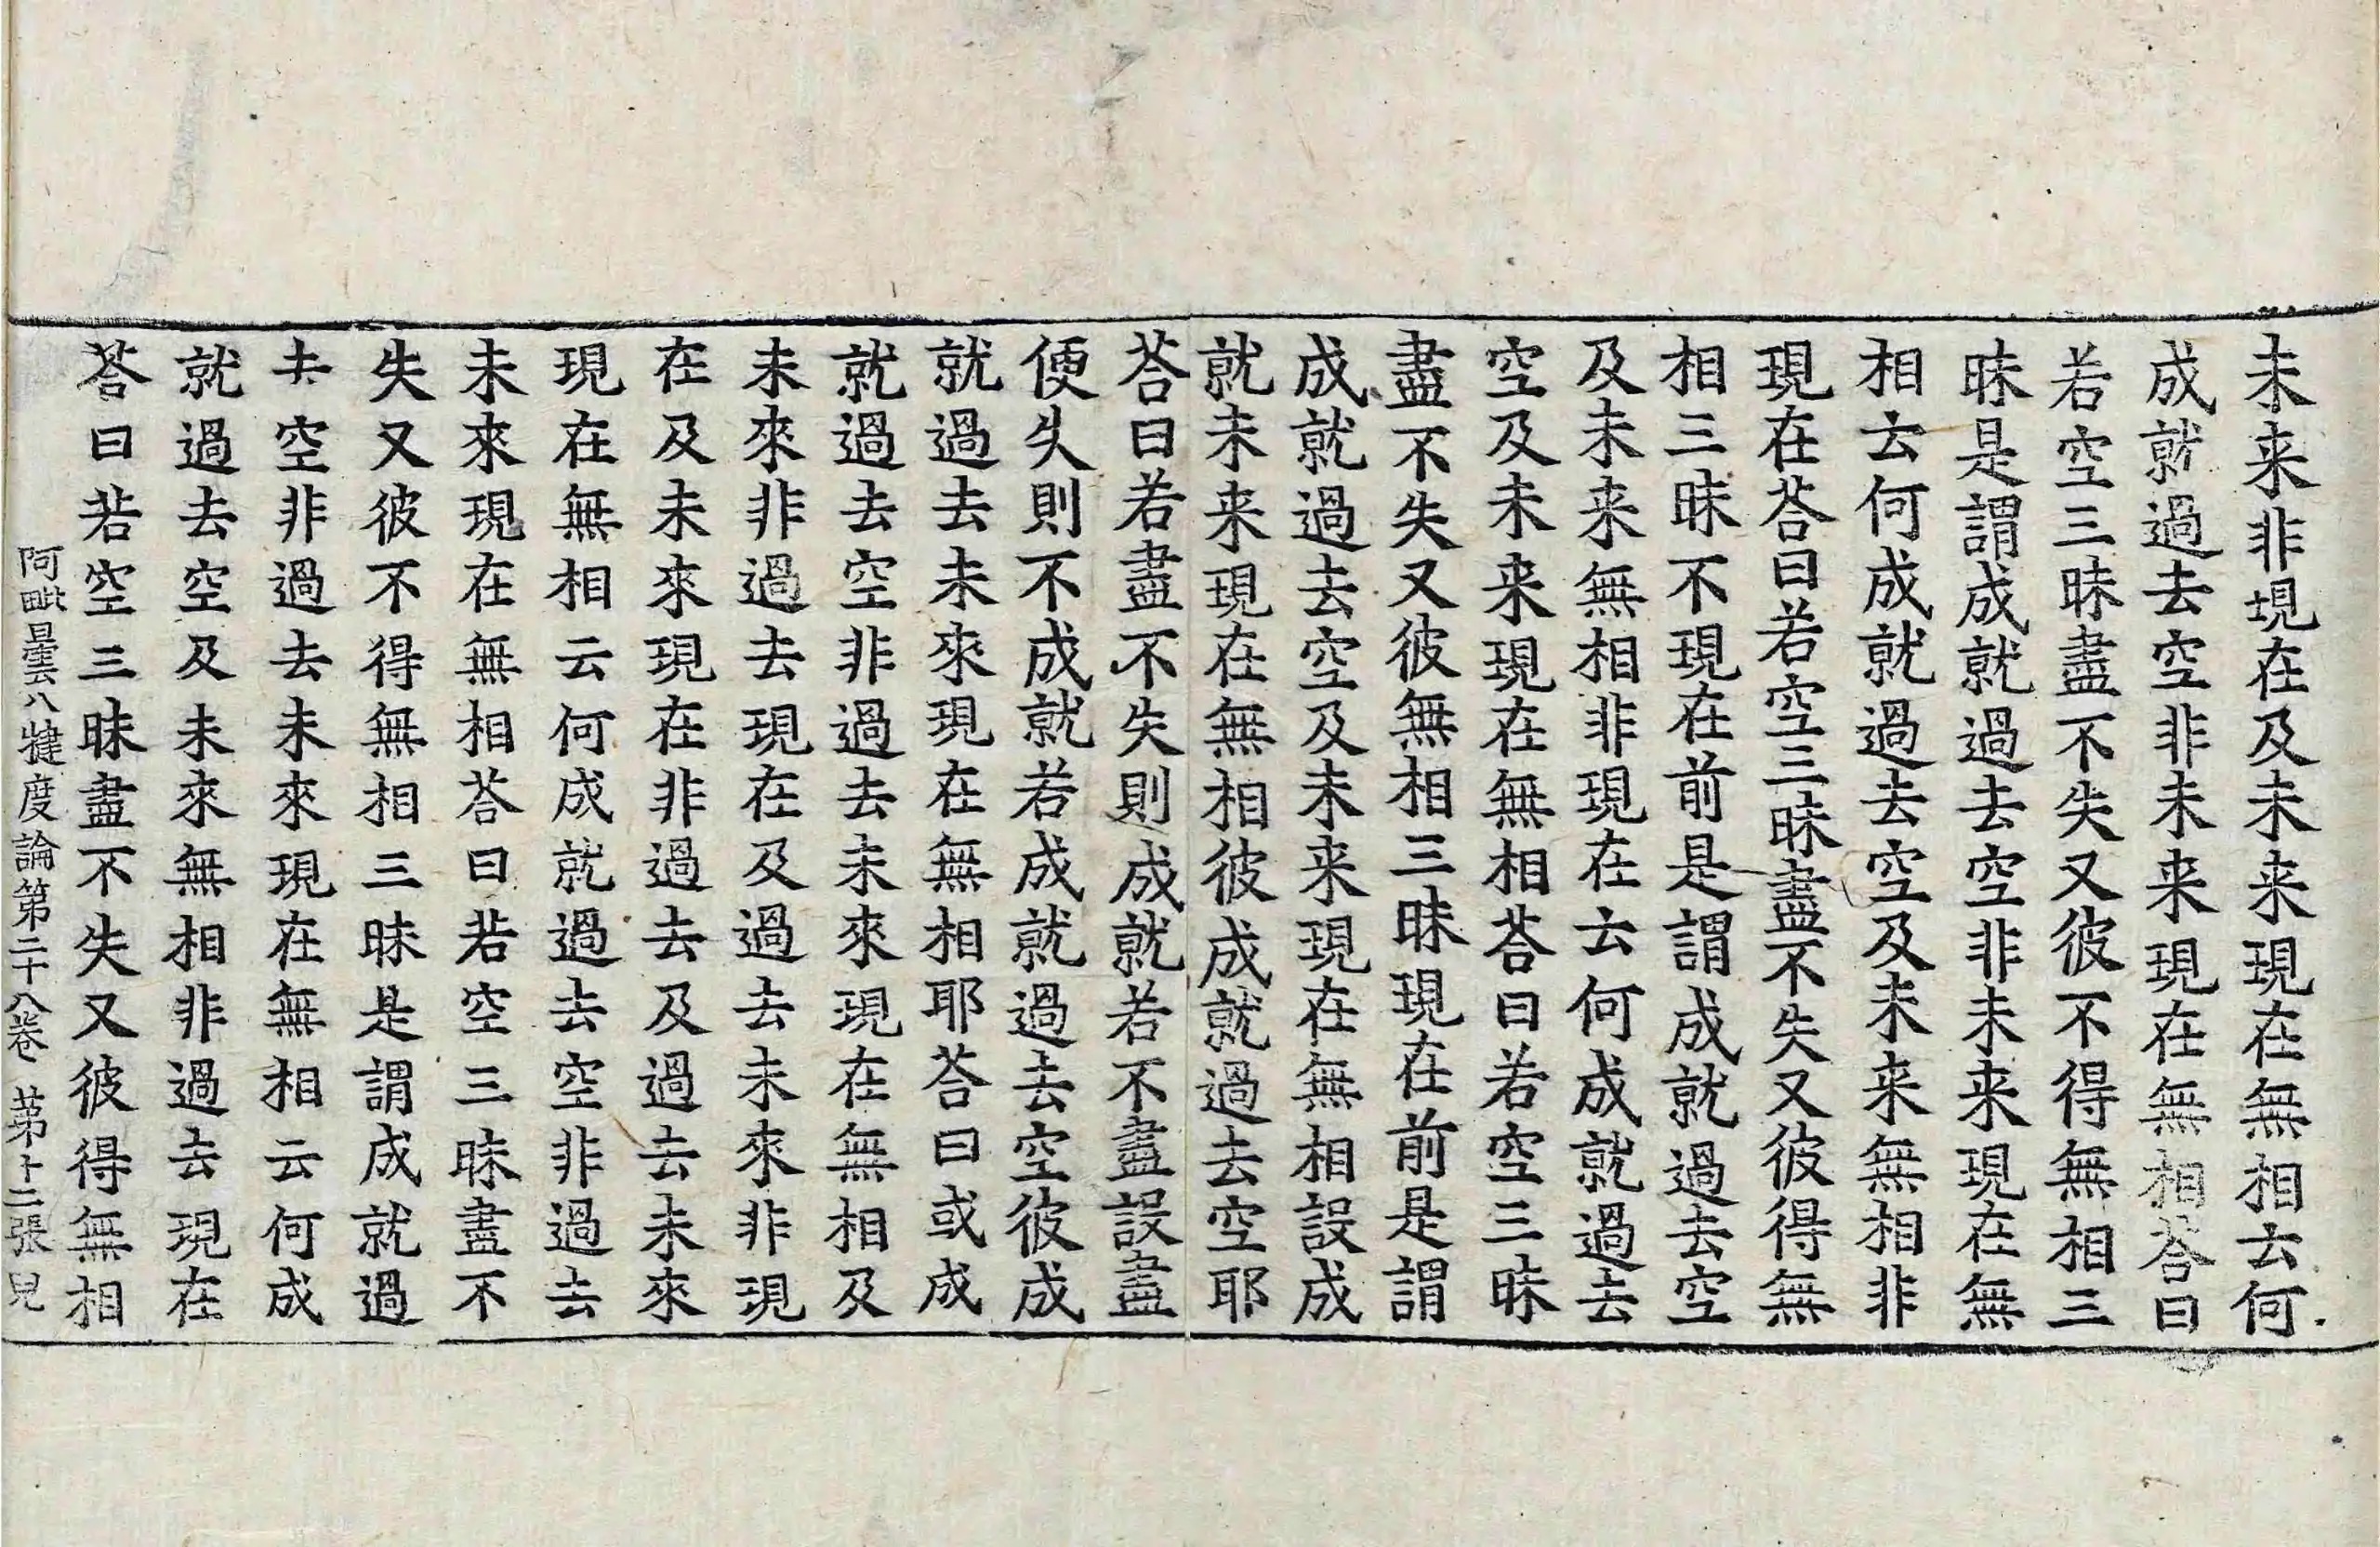 未来非現在及未来現在無相云何
成就過去空非未来現在無相荅曰
若空三昧盡不失又彼不得無相三
昧是謂成就過去空非未来現在無
相云何成就過去空及未来無相非
現在荅曰若空三昧盡不失又彼得無
相三昧不現在前是謂成就過去空
及未来無相非現在云何成就過去
空及未来現在無相荅曰若空三昧
盡不失又彼無相三昧現在前是謂
成就過去空及未来現在無相設成
就未来現在無相彼成就過去空耶
荅曰若盡不失則成就若不盡設盡
便失則不成就若成就過去空彼成
就過去未來現在無相耶荅曰或成
就過去空非過去未來現在無相及
未來非過去現在及過去未來非現
在及未來現在非過去及過去未來
現在無相云何成就過去空非過去
未來現在無相荅曰若空三昧盡不
失又彼不得無相三昧是謂成就過
去空非過去未來現在無相云何成
就過去空及未來無相非過去現在
荅曰若空三昧盡不失又彼得無相
阿毗曇八犍度論第二十八卷 第十二張 皃